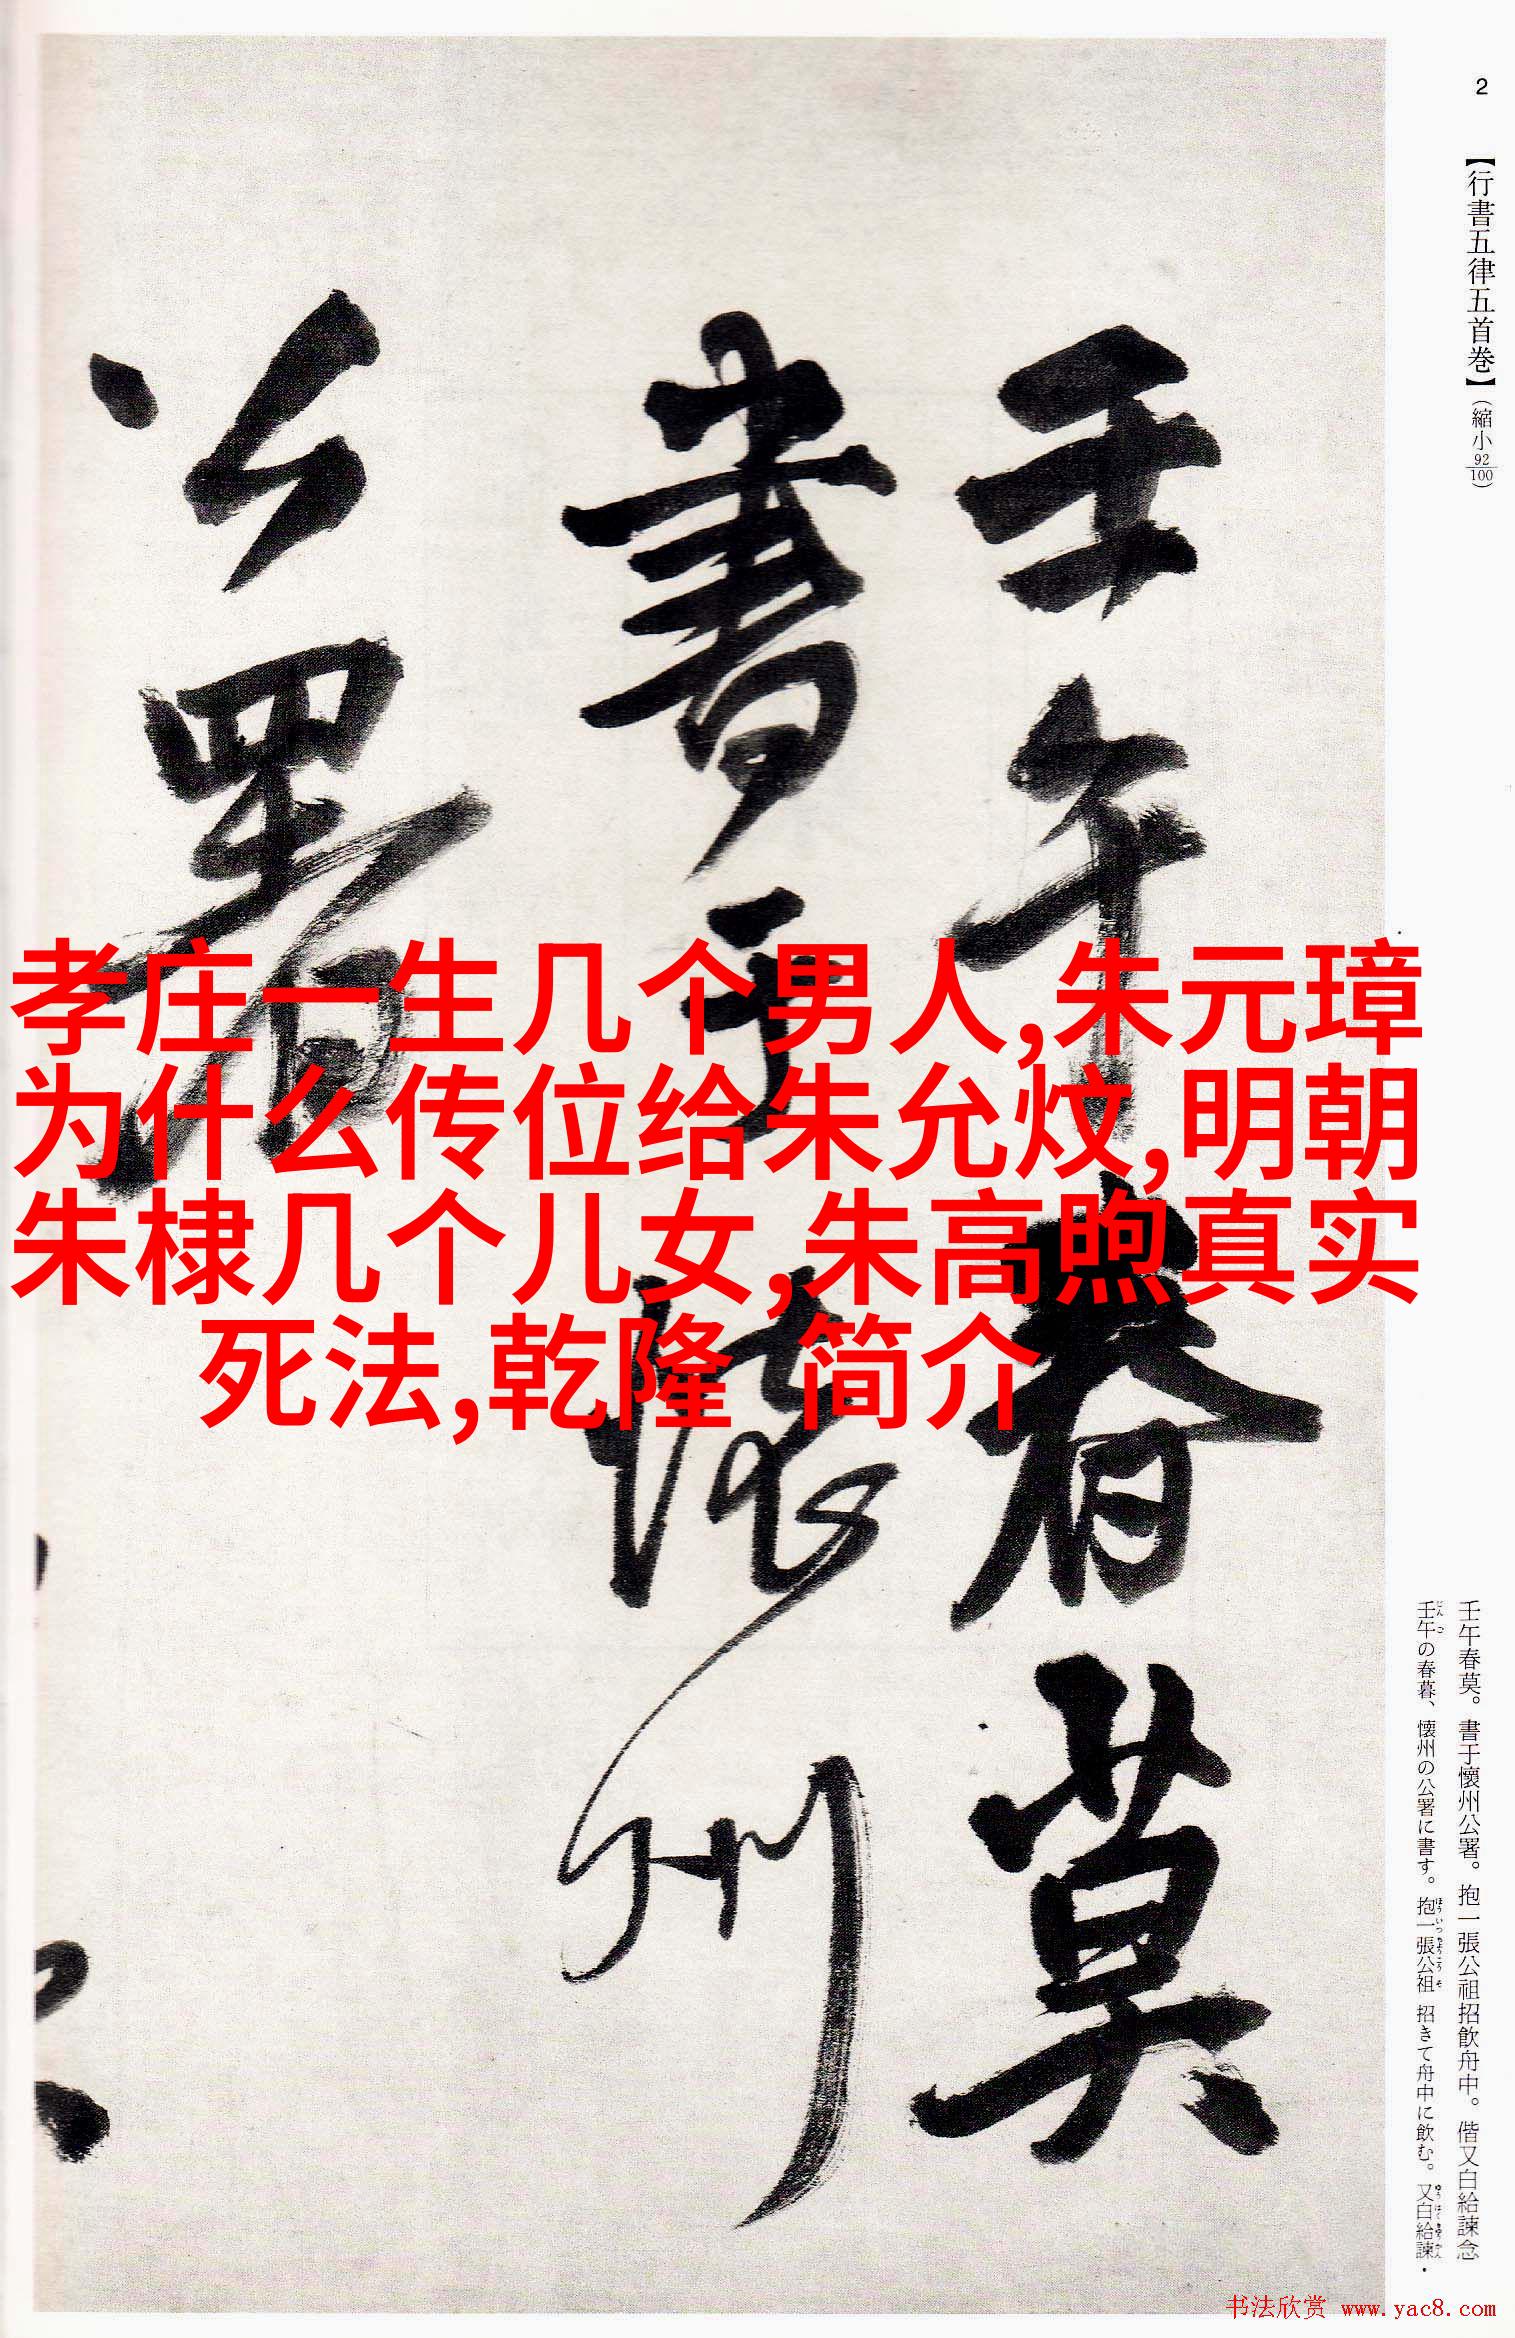 2
【行書五律五首巻】（縮小92/100）
壬午春莫
書于懐州
公署
孝庄一生几个男人,朱元璋
为什么传位给朱允炆,明朝
朱棣几个儿女,朱高煦真实
死法,乾隆 简介
壬午春莫。書于懷州公署。抱一張公祖招飲舟中。偕又白給諫念
壬午の春暮、懷州の公署に書す。抱一張公祖 招きて舟中に飲む。又白給諫・
书法欣赏 www.yac8.com